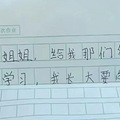 姐姐，给我那们
学习，我长大要